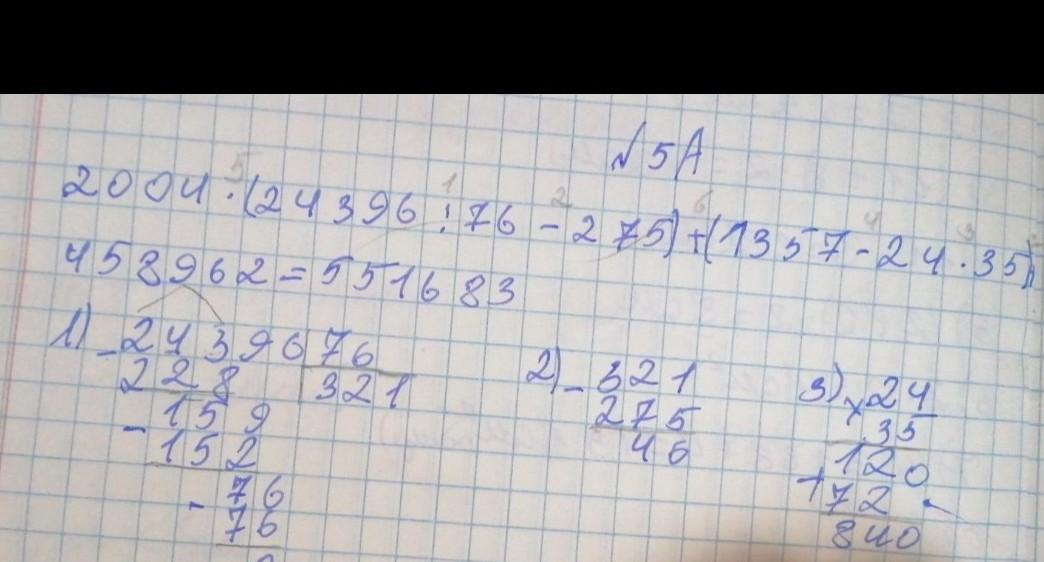 № 5А
2004 · (24396 : 76 - 275) + (1357 - 24 · 35)
5 1 2 6 4 3
458962 = 551683
1) - 24396 | 76
228 | 321
- 159
152
- 76
76
0
2) - 321
275
46
3) x 24
35
120
+ 72
840